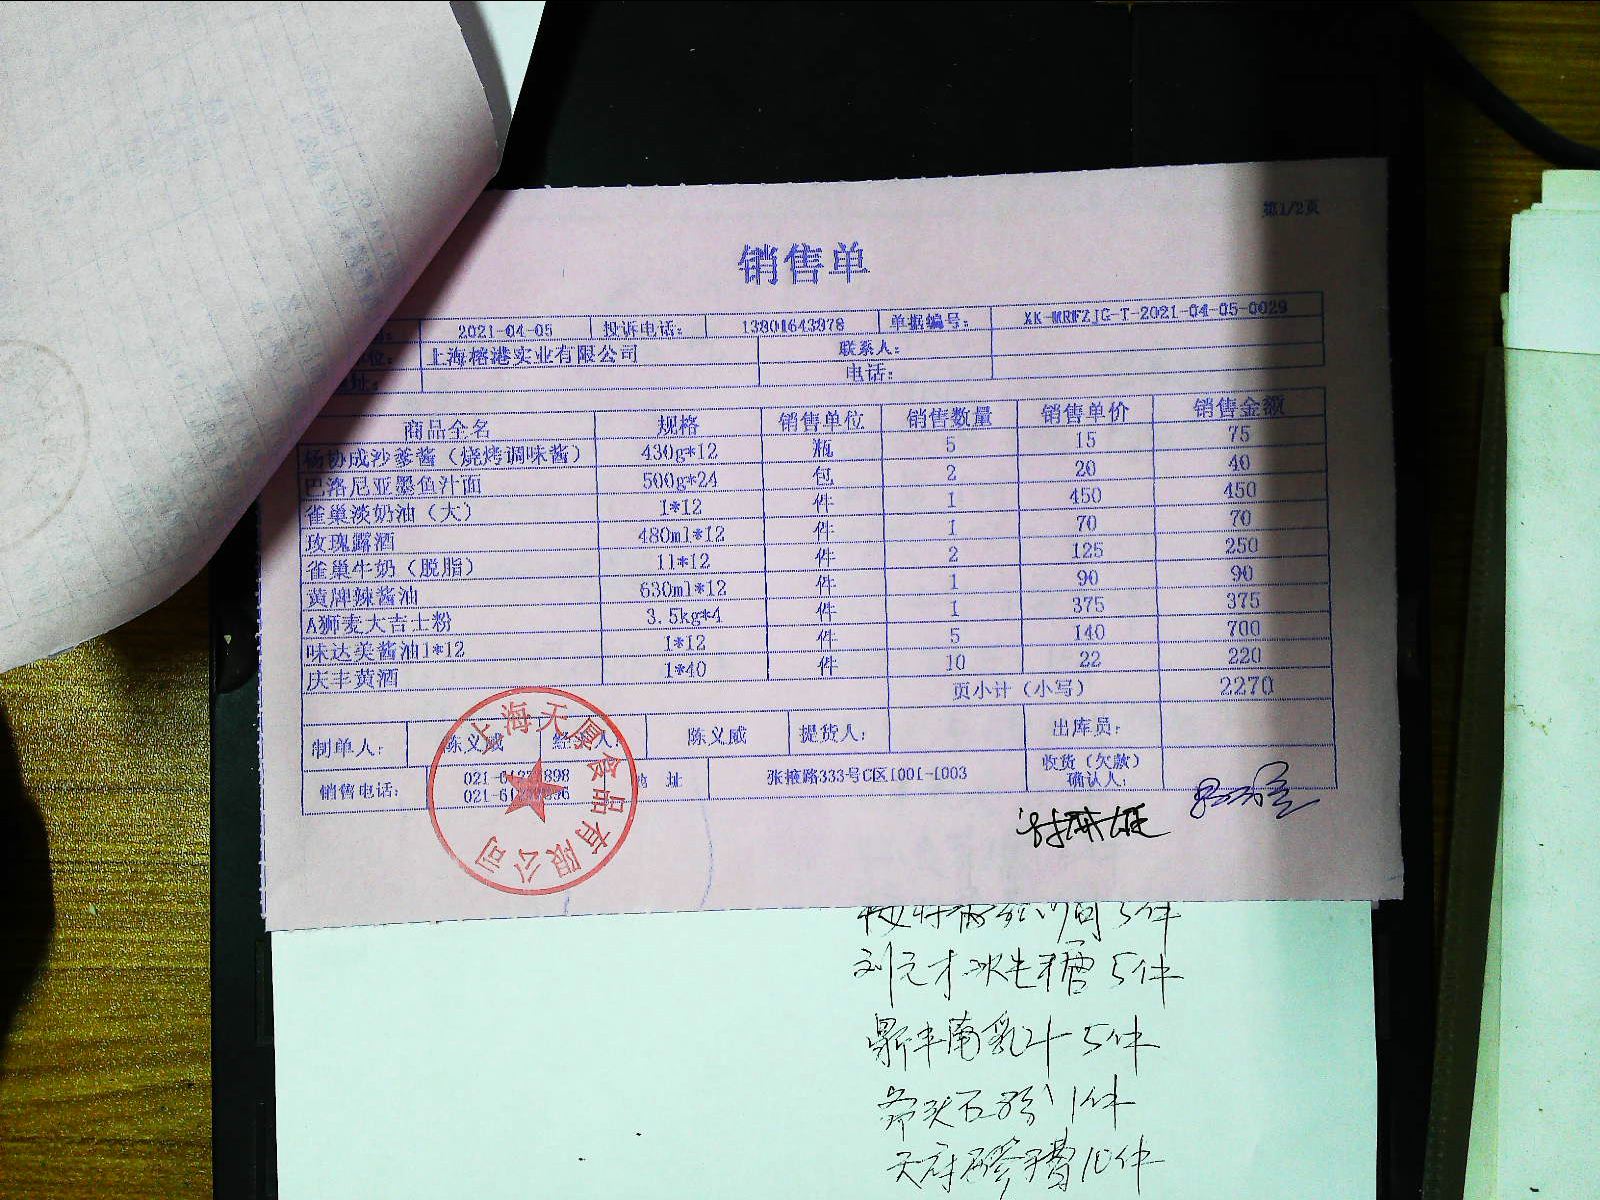 第1/2页
销售单
2021-04-05 投诉电话: 13801643878 单据编号: XK-MRFZJG-T-2021-04-05-0029
上海榕港实业有限公司 联系人:
电话:
商品全名 规格 销售单位 销售数量 销售单价 销售金额
杨协成沙爹酱（烧烤调味酱） 430g*12 瓶 5 15 75
巴洛尼亚墨鱼汁面 500g*24 包 2 20 40
雀巢淡奶油（大） 1*12 件 1 450 450
玫瑰露酒 480ml*12 件 1 70 70
雀巢牛奶（脱脂） 1l*12 件 2 125 250
黄牌辣酱油 630ml*12 件 1 90 90
A狮麦大吉士粉 3.5kg*4 件 1 375 375
味达美酱油1*12 1*12 件 5 140 700
庆丰黄酒 1*40 件 10 22 220
页小计（小写） 2270
制单人: 陈义威 经 人: 陈义威 提货人: 出库员:
销售电话: 021- 898 地 址 张掖路333号C区1001-1003 收货（欠款）
确认人:
上海天 食品有限公司
5件
刘 才冰 糖 5件
鼎丰南乳汁 5件
1件
10件